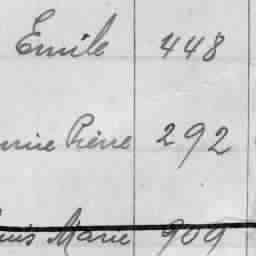 Emile 448
Pierre 292
Marie 909